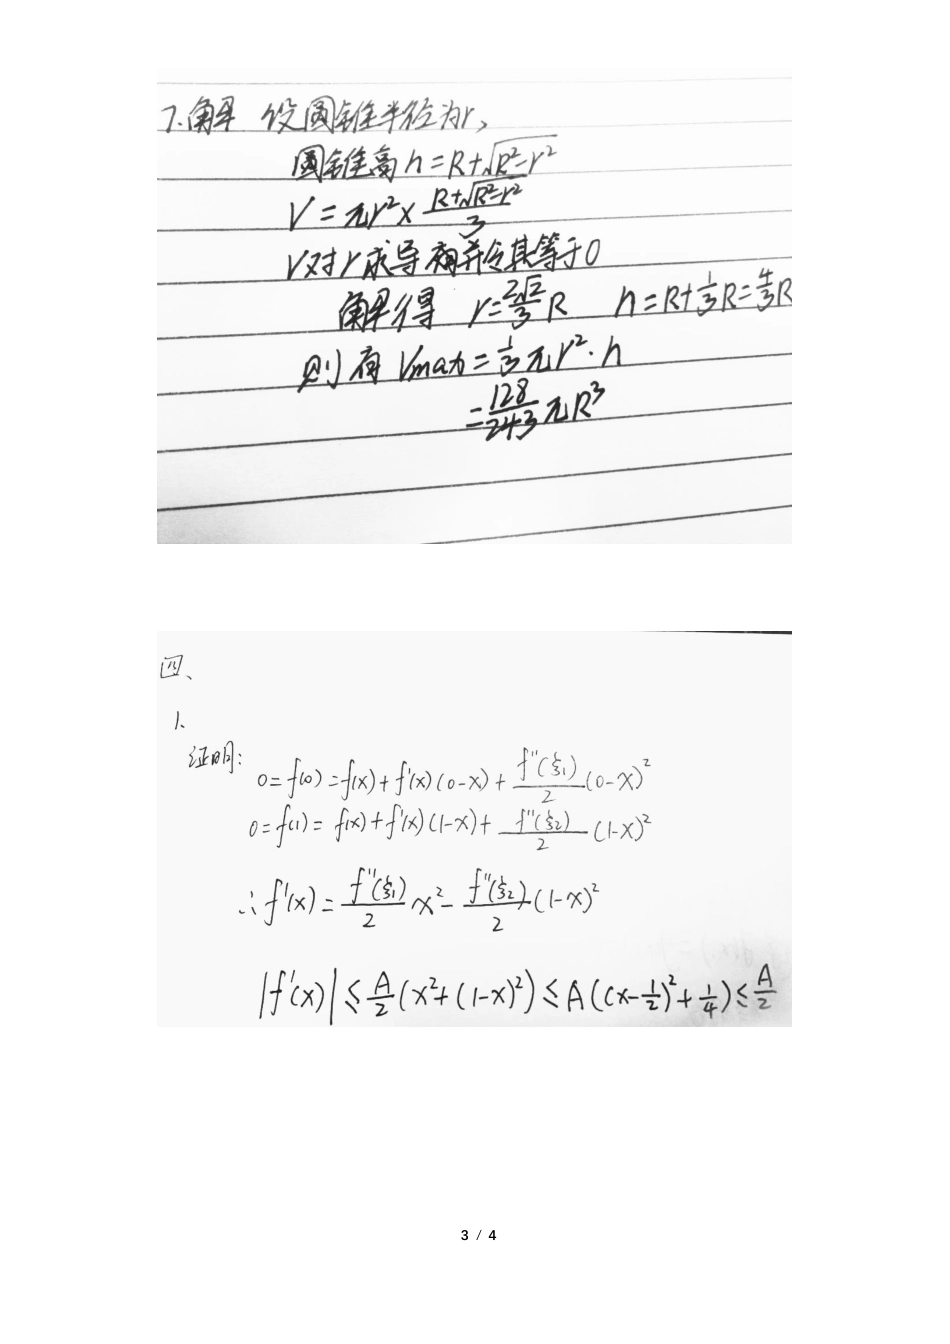 7.解 设圆锥半径为r,
圆锥高 h=R+√(R²-r²)
V=πr²×(R+√(R²-r²))/3
V对r求导 并令其等于0
解得 r=(2√2/3)R h=R+(1/3)R=(4/3)R
则有 Vmax=(1/3)πr²·h
=(128/243)πR³
四、
1.
证明:
0=f(0)=f(x)+f'(x)(0-x)+(f''(ξ₁)/2)(0-x)²
0=f(1)=f(x)+f'(x)(1-x)+(f''(ξ₂)/2)(1-x)²
∴f'(x)=(f''(ξ₁)/2)x²-(f''(ξ₂)/2)(1-x)²
|f'(x)|≤(A/2)(x²+(1-x)²)≤A((x-1/2)²+1/4)≤A/2
3 / 4